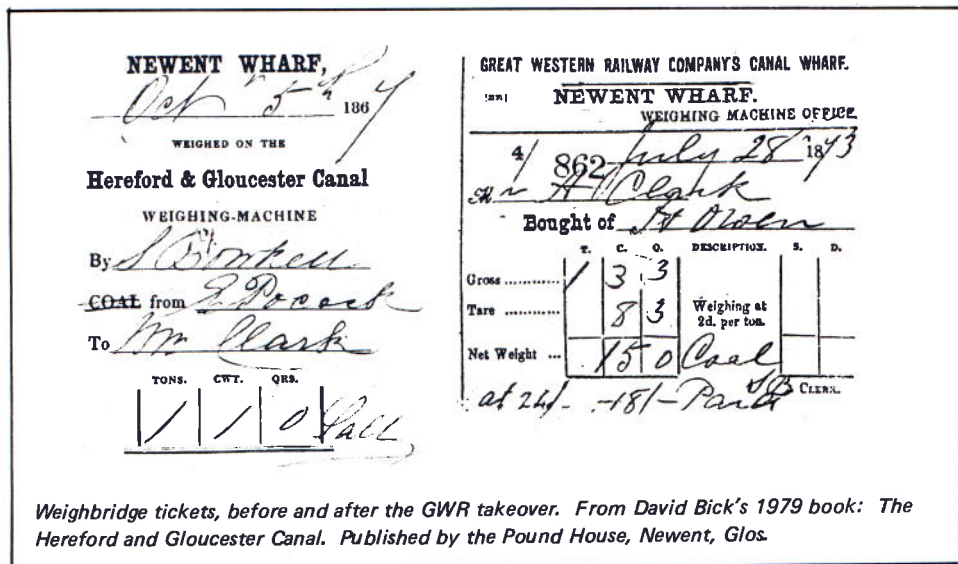 NEWENT WHARF,
Oct 5th 1867
WEIGHED ON THE
Hereford & Gloucester Canal
WEIGHING-MACHINE
By S
COAL from E Pocock
To Wm Clark
TONS. CWT. QRS.
1 1 0 Salt
GREAT WESTERN RAILWAY COMPANY'S CANAL WHARF.
NEWENT WHARF.
WEIGHING MACHINE OFFICE
4/ 862 July 28 1873
Mr A Clark
Bought of
T. C. Q. DESCRIPTION. S. D.
Gross ............ 1 3 3
Tare ............ 8 3 Weighing at 2d. per ton.
Net Weight ... 15 0 Coal
at 24/- -18/- Paid SB CLERK.
Weighbridge tickets, before and after the GWR takeover. From David Bick's 1979 book: The
Hereford and Gloucester Canal. Published by the Pound House, Newent, Glos.